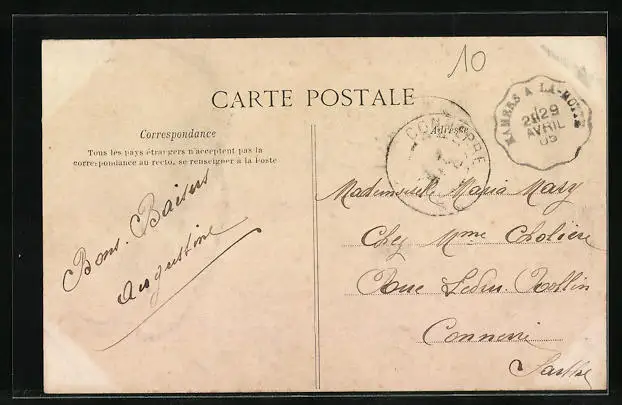 10
CARTE POSTALE
MAMERS A LA-HUTTE
2E29
AVRIL
05
CONNERRÉ
Correspondance
Adresse
Tous les pays étrangers n'acceptent pas la
correspondance au recto, se renseigner à la Poste
Bons Baisers
Augustine
Mademoiselle Maria Mary
Chez Mme Cholière
Rue Ledru Rollin
Connerré
Sarthe